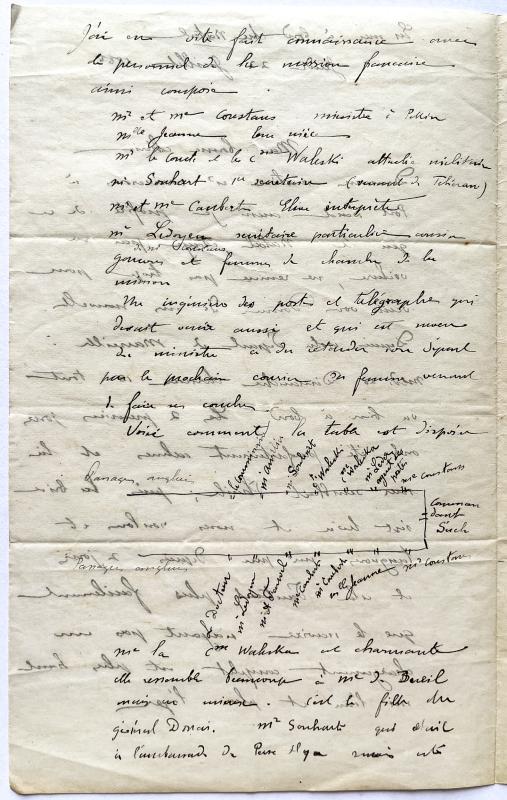 J'ai eu vite fait connaissance avec
le personnel de la mission francaise
ainsi composée
mr et me Constans ministre à Pekin
mlle Jeanne leur nièce
mr le Comte et la Csse Waleski attaché militaire
mr Souhart 1er secretaire (revenant de Téhéran)
mr et me Caubert Elève interprète
mr Ledoyen secrétaire particulier
de mr Constans
et femmes de chambre de la
mission
Un ingénieur des post et télégraphes qui
devait venir aussi et qui est neveu
du ministre a du retarder son départ
par le prochain courrier sa femme venant
de faire ses couches
Voici comment la table est disposée
Passagers anglais
mr Souhart
Cte Waleski
Csse Waleska
me Constans
Comman
dant
Passagers anglais
Docteur
mr Ledoyen
me Caubert
mr Caubert
mlle Jeanne
mr Constans
me la Csse Waleska est charmante
elle ressemble beaucoup à me de
mais en mieux. c'est la fille du
général Douai. mr Souhart qui était
à l'ambassade de Perse il y a mais été